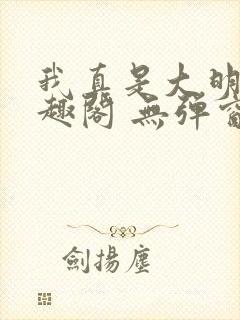 我真是大明
趣閣 無彈窗
劍揚塵